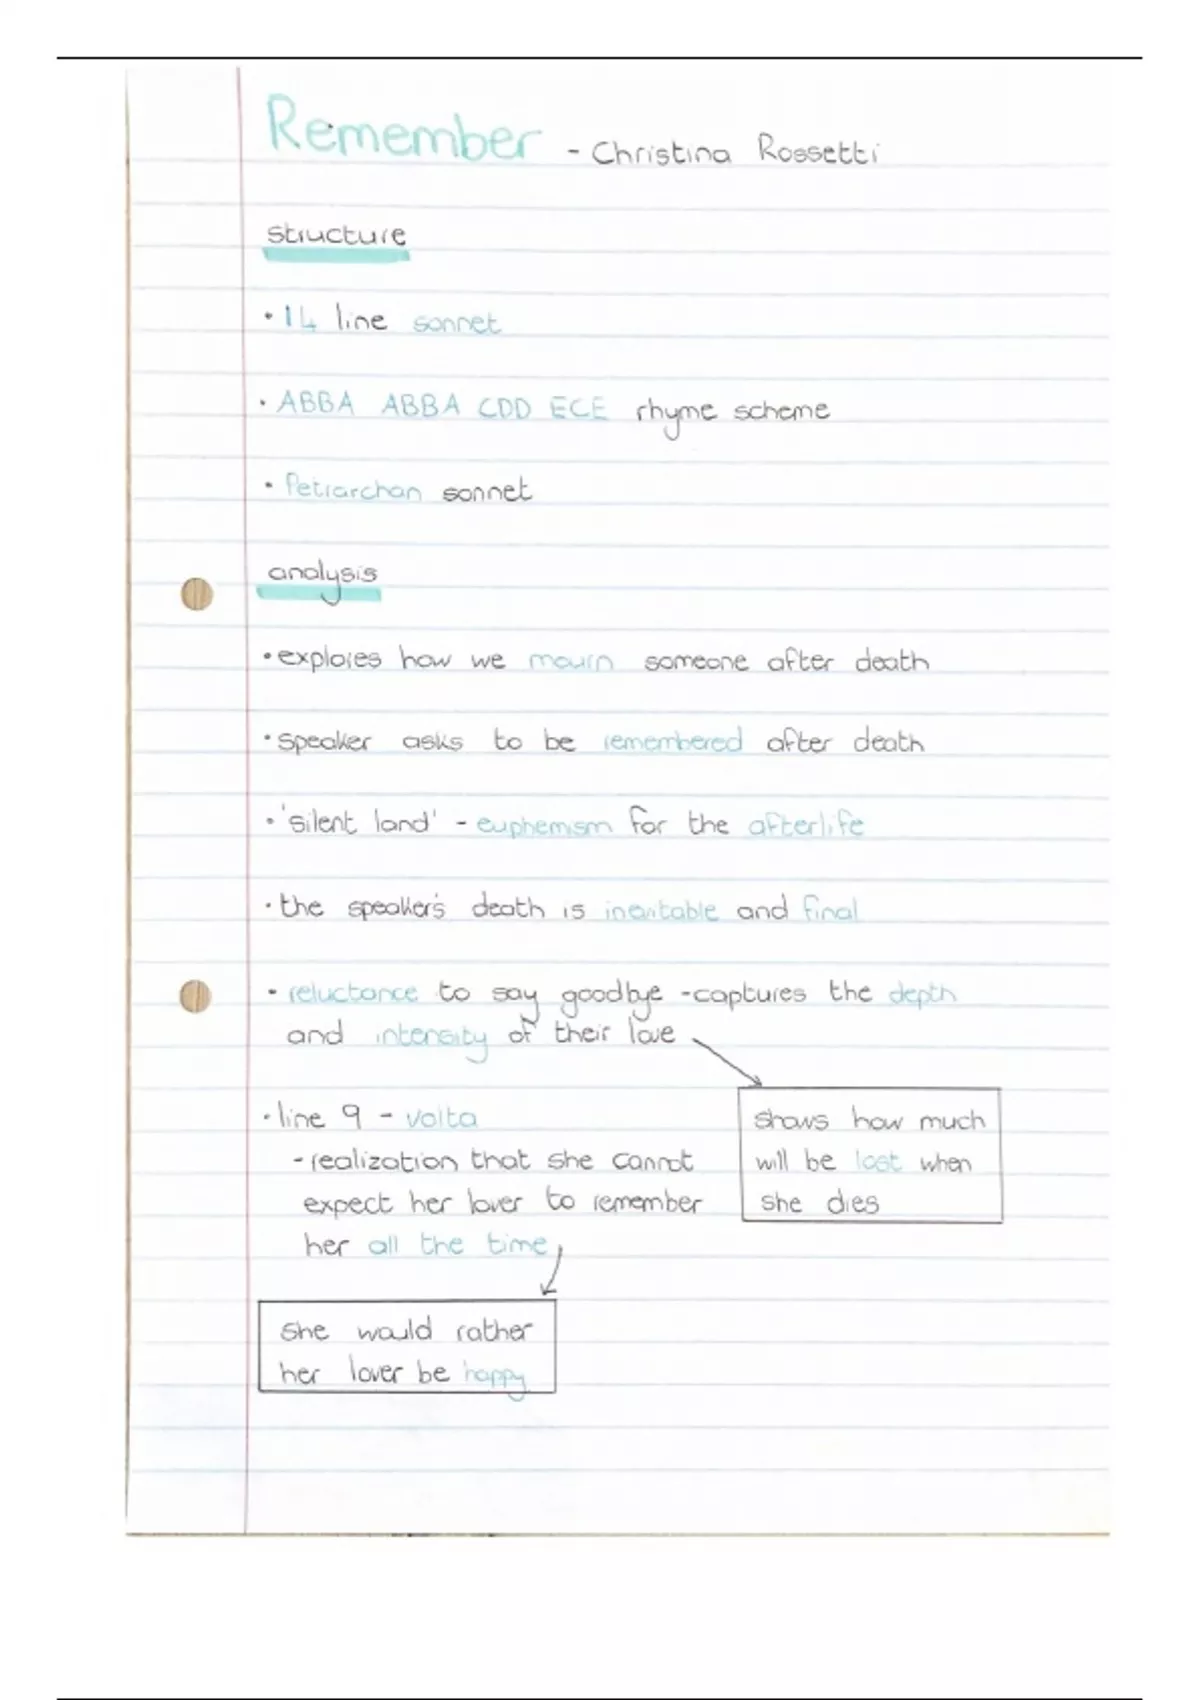 Remember - Christina Rossetti
structure
• 14 line sonnet
• ABBA ABBA CDD ECE rhyme scheme
• Petrarchan sonnet
analysis
• explores how we mourn someone after death
• speaker asks to be remembered after death
• 'silent land' - euphemism for the afterlife
• the speaker's death is inevitable and final
• reluctance to say goodbye - captures the depth
and intensity of their love
• line 9 - volta
- realization that she cannot
expect her lover to remember
her all the time
shows how much
will be lost when
she dies
she would rather
her lover be happy